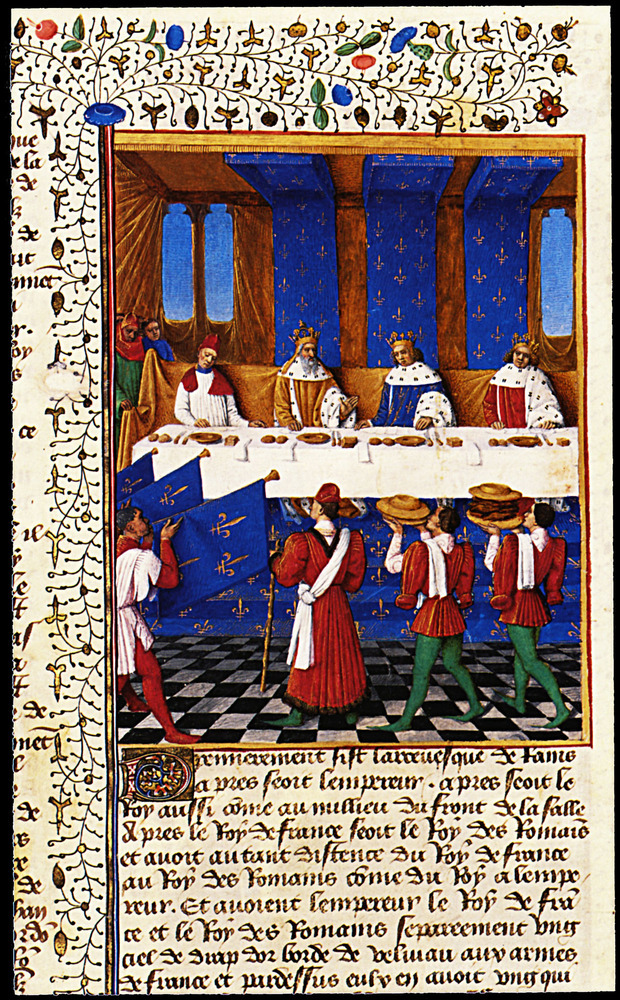 Premierement sist larcevesque de Rains
apres seoit lempereur. apres seoit le
Roy aussi come au millieu du front de la salle
Apres le Roy de france seoit le Roy des Romains
et avoit autant distence du Roy de france
au Roy des Romains come du Roy a lempe
reur. Et avoient lempereur le Roy de frā
ce et le Roy des Romains separeement ung
ciel de drap dor borde de veluiau aux armes
de france et pardessus eulx en avoit ung qui
de la
de
de
ce
il
de
de
de